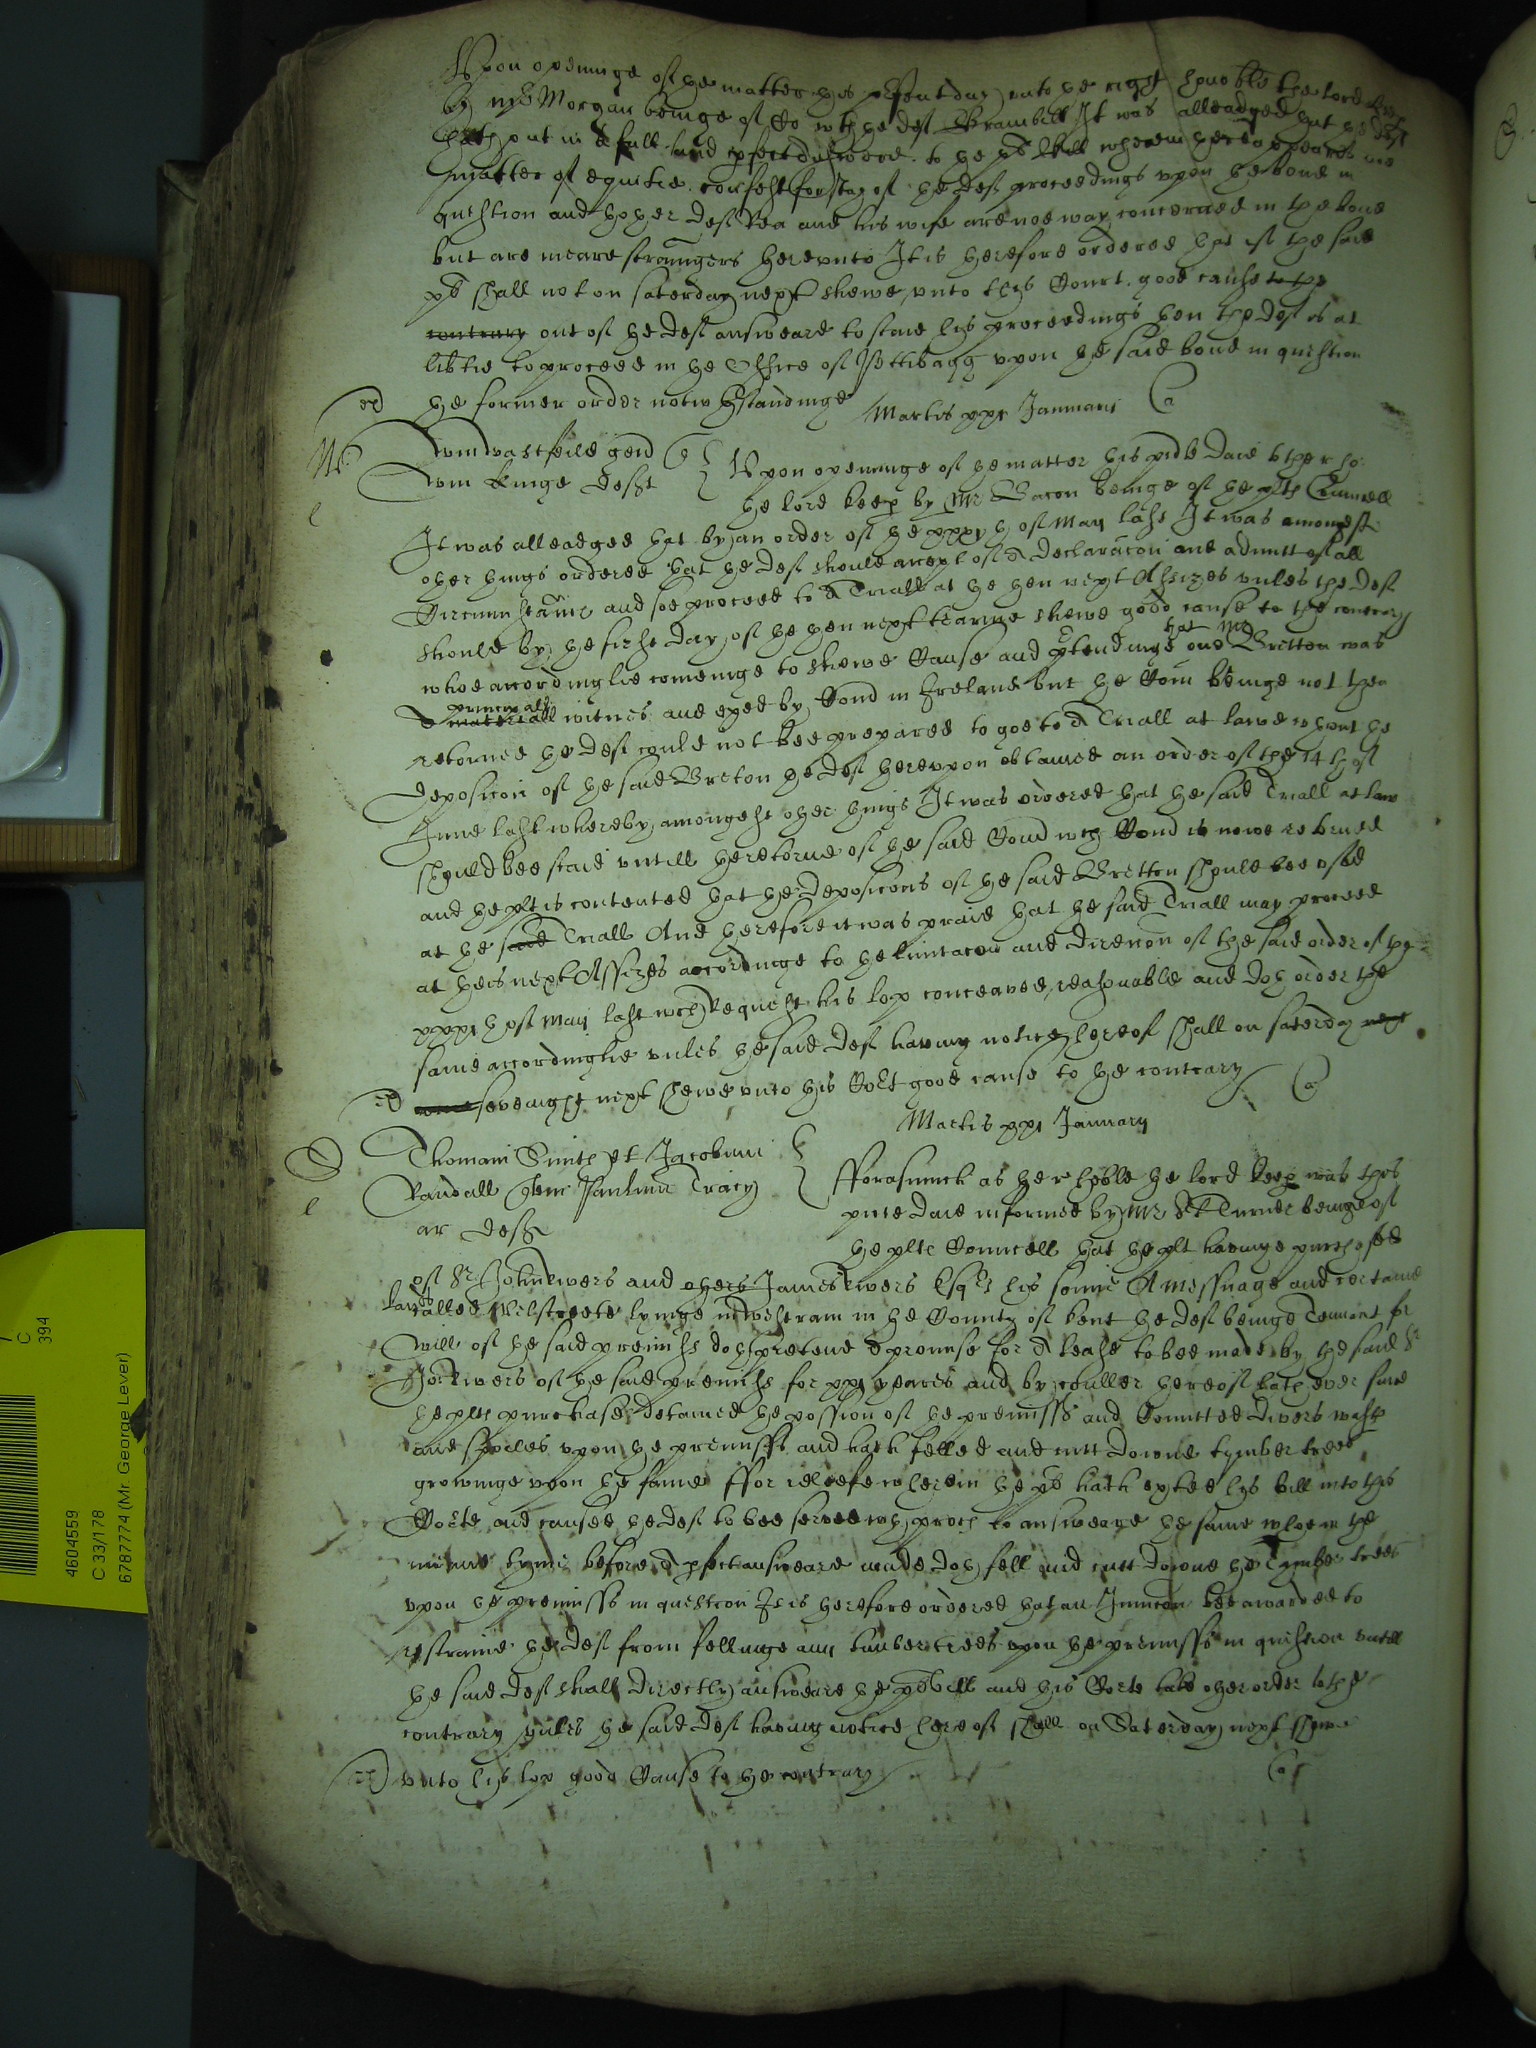 Upon openinge of the matter this present day unto the right honoble the lord keep
by mr Morgan beinge of Co wth the deft Brambell It was alleadged that the deft
hath put in a full and pfect answere to the pls bill wherein there appeares noe
matter of equitie confest for stay of the defts proceedings upon the bond in
question and thother deft Rea and his wife are noe way concerned in the bond
but are meare straungers thereunto It is therefore ordered that if the said
plt shall not on saterday next shewe unto this Court good cause to the
contrary out of the defts answeare to staie his proceedings then the deft is at
libtie to proceed in the Office of Pettibagg upon the said bond in question
the former order notwthstandinge
Martis xxi Januarii
Upon openinge of the matter this pnte daie to the r ho:
Willm Kinge deft
the lord keep by Mr Bacon beinge of the plts Councell
It was alleadged that by an order of the xxxth of May last It was amongest
other things ordered that the deft should accept of a declaracon and admitt of all
Circumstances and soe proceed to a Triall at the then next Assizes unles the deft
should by the first day of the then next tearme shewe good cause to the contrary
whoe accordinglie comeinge to shewe Cause and ptendinge that Mr one Britton was
a materiall principall witnes and exed by Comd in Ireland but the Com beinge not then
retorned the deft could not bee prepared to goe to a Triall at lawe wthout the
deposicon of the said Breton the deft thereupon obtained an order of the 14th of
June last whereby amongest other things It was ordered that the said Triall at law
should bee staid untill the retorne of the said Comd wch Comd is nowe retorned
and the plt is contented that the deposicons of the said Britton should bee used
at the said Triall And therefore it was praid that the said Triall may proceed
at theis next Assizes accordinge to the limitacon and direccon of the said order of the
xxxth of May last wch Request his lop conceaved reasonable and doth order the
same accordinglie unles the said deft having notice hereof shall on saterday next
sevenight next shewe unto this Court good cause to the contrary
Martis xxi January
Thomam Smith et Jacobum
Randall quer Paulum Tracy
ar deft
fforasmuch as the r hoble the lord keep was this
pnte daie informed by Mr Turner beinge of
the plts Councell that the plt havinge purchased
of Sr John Rivers and others James Rivers Esqr his sonne A messuage and certaine
lands called Milstreete lyinge in Westram in the County of Kent the deft beinge Tennant at
will of the said premisss doth pretend a promise for a Lease to bee made by the said Sr
Jo: Rivers of the said premisss for xxi yeares and by couller thereof hath ever since
the plts purchase detained the possion of the premisss and Comitted divers wasts
and spoiles upon the premisss and hath felled and cutt downe tymber trees
growinge upon the same ffor releefe wherein the plt hath exhted his bill into this
Corte and caused the deft to bee served wth proces to answeare the same whoe in the
meane tyme before a pfect answeare made doth fell and cutt downe the Tymber trees
upon the premisss in question It is therefore ordered that an Iniunccon bee awarded to
restraine the deft from fellinge any timber trees upon the premisss in question untill
the said deft shall directly answeare the pls bill and this Corte take other order to the
contrary unles the said deft having notice hereof shall on Saterday next shewe
unto his lop good Cause to the contrary
4604559
C 33/178
6787774 (Mr. George Lever)
C
394